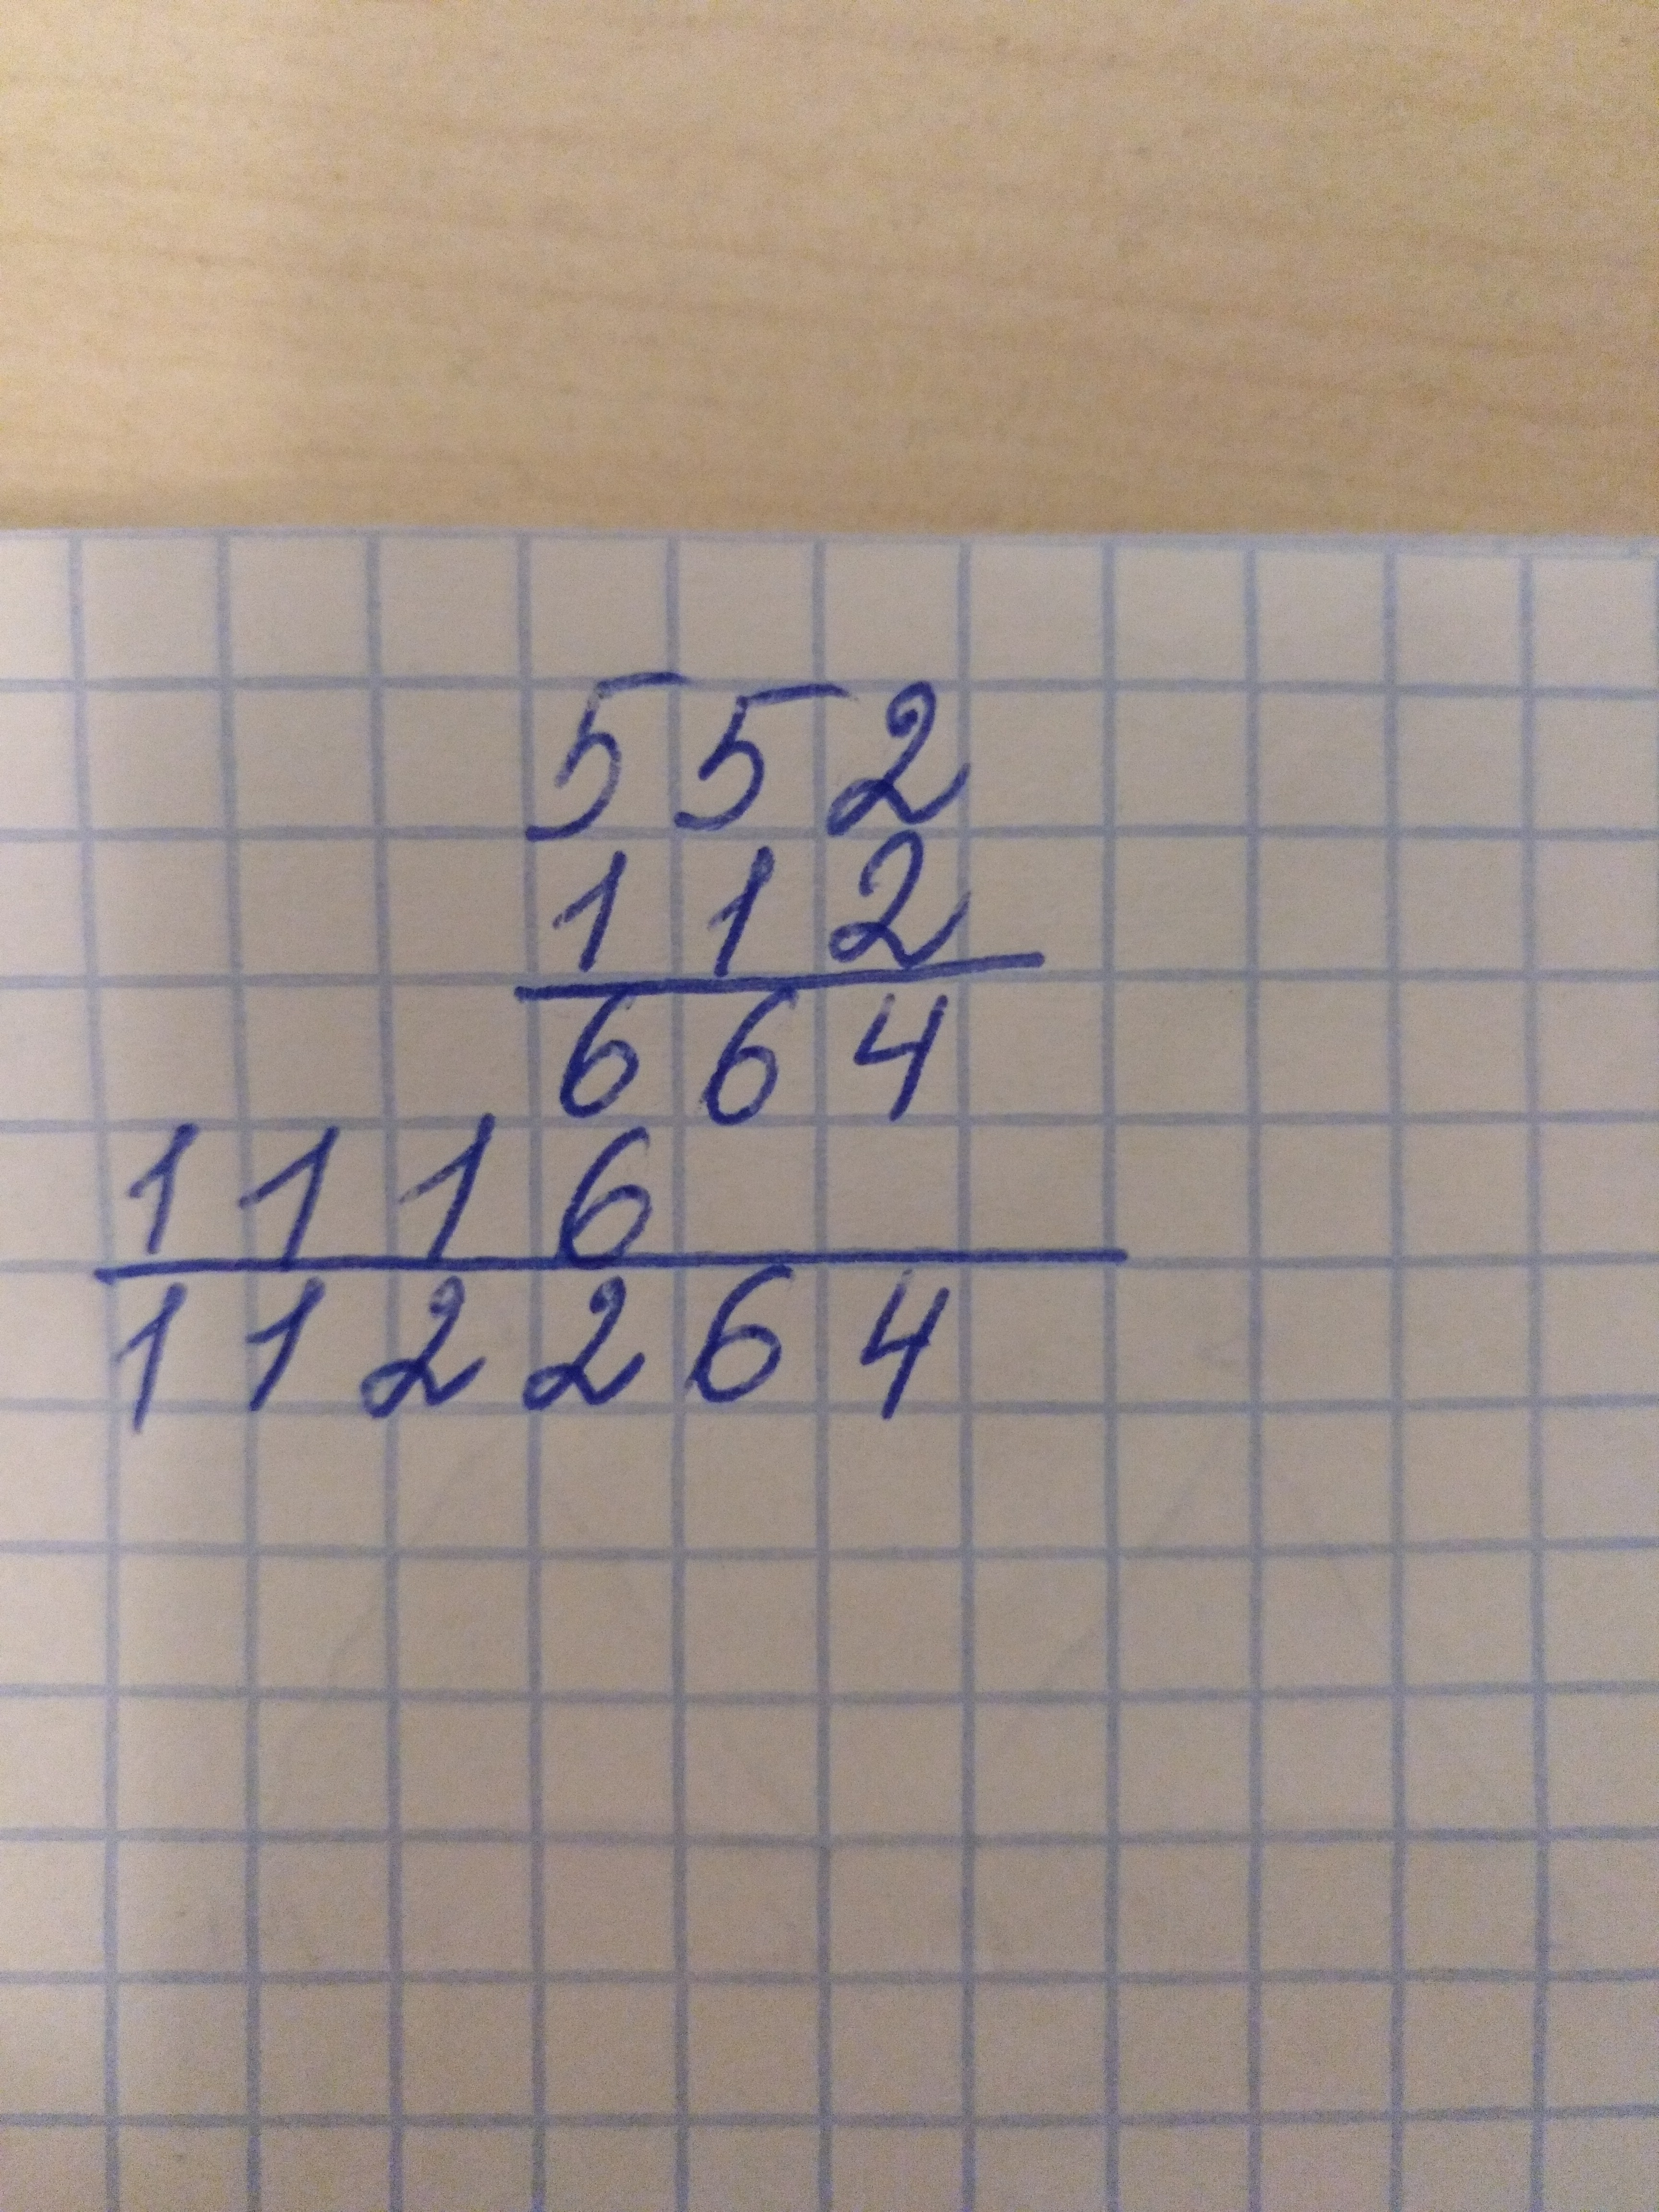 552
112
664
1116
112264